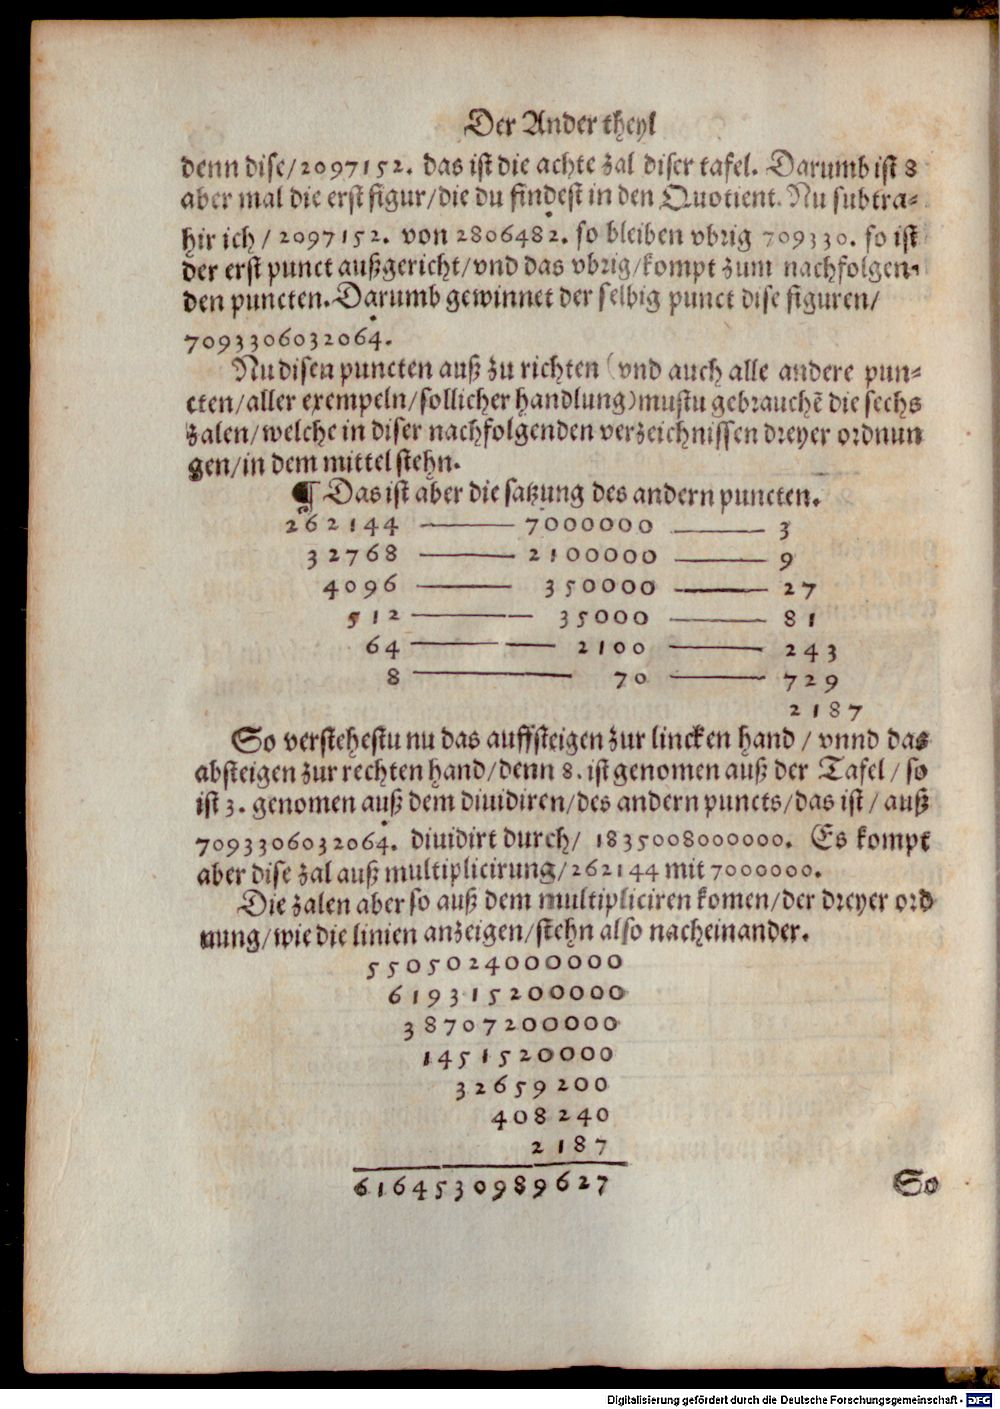 Der Ander theyl
denn dise/2097152. das ist die achte zal diser tafel. Darumb ist 8
aber mal die erst figur/die du findest in den Quotient. Nu subtra⸗
hir ich / 2097152. von 2806482. so bleiben vbrig 709330. so ist
der erst punct außgericht/vnd das vbrig/kompt zum nachfolgen⸗
den puncten. Darumb gewinnet der selbig punct dise figuren/
7093306032064.
Nu disen puncten auß zu richten (vnd auch alle andere pun⸗
cten/aller exempeln/sollicher handlung) mustu gebrauchẽ die sechs
zalen/welche in diser nachfolgenden verzeichnissen dreyer ordnun
gen/in dem mittel stehn.
¶ Das ist aber die satzung des andern puncten.
262144 —— 7000000 —— 3
32768 —— 2100000 —— 9
4096 —— 350000 —— 27
512 —— 35000 —— 81
64 —— 2100 —— 243
8 —— 70 —— 729
2187
So verstehestu nu das auffsteigen zur lincken hand / vnnd das
absteigen zur rechten hand/denn 8. ist genomen auß der Tafel / so
ist 3. genomen auß dem diuidiren/des andern puncts/das ist / auß
7093306032064. diuidirt durch/ 1835008000000. Es kompt
aber dise zal auß multiplicirung/262144 mit 7000000.
Die zalen aber so auß dem multipliciren komen/der dreyer ord
nung/wie die linien anzeigen/stehn also nacheinander.
5505024000000
619315200000
38707200000
1451520000
32659200
408240
2187
6164530989627
So
Digitalisierung gefördert durch die Deutsche Forschungsgemeinschaft - DFG